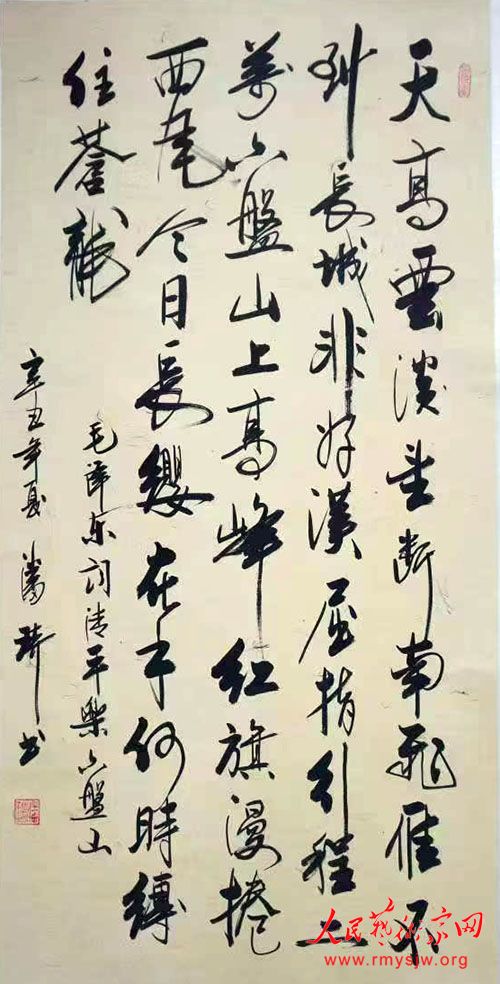 天高雲淡望断南飛雁不
到長城非好漢屈指行程二
萬六盤山上高峰红旗漫捲
西風今日長纓在手何時縛
住蒼龍
毛泽东词清平樂六盤山
辛丑年夏潘琦书
人民藝術家网
www.rmysjw.org